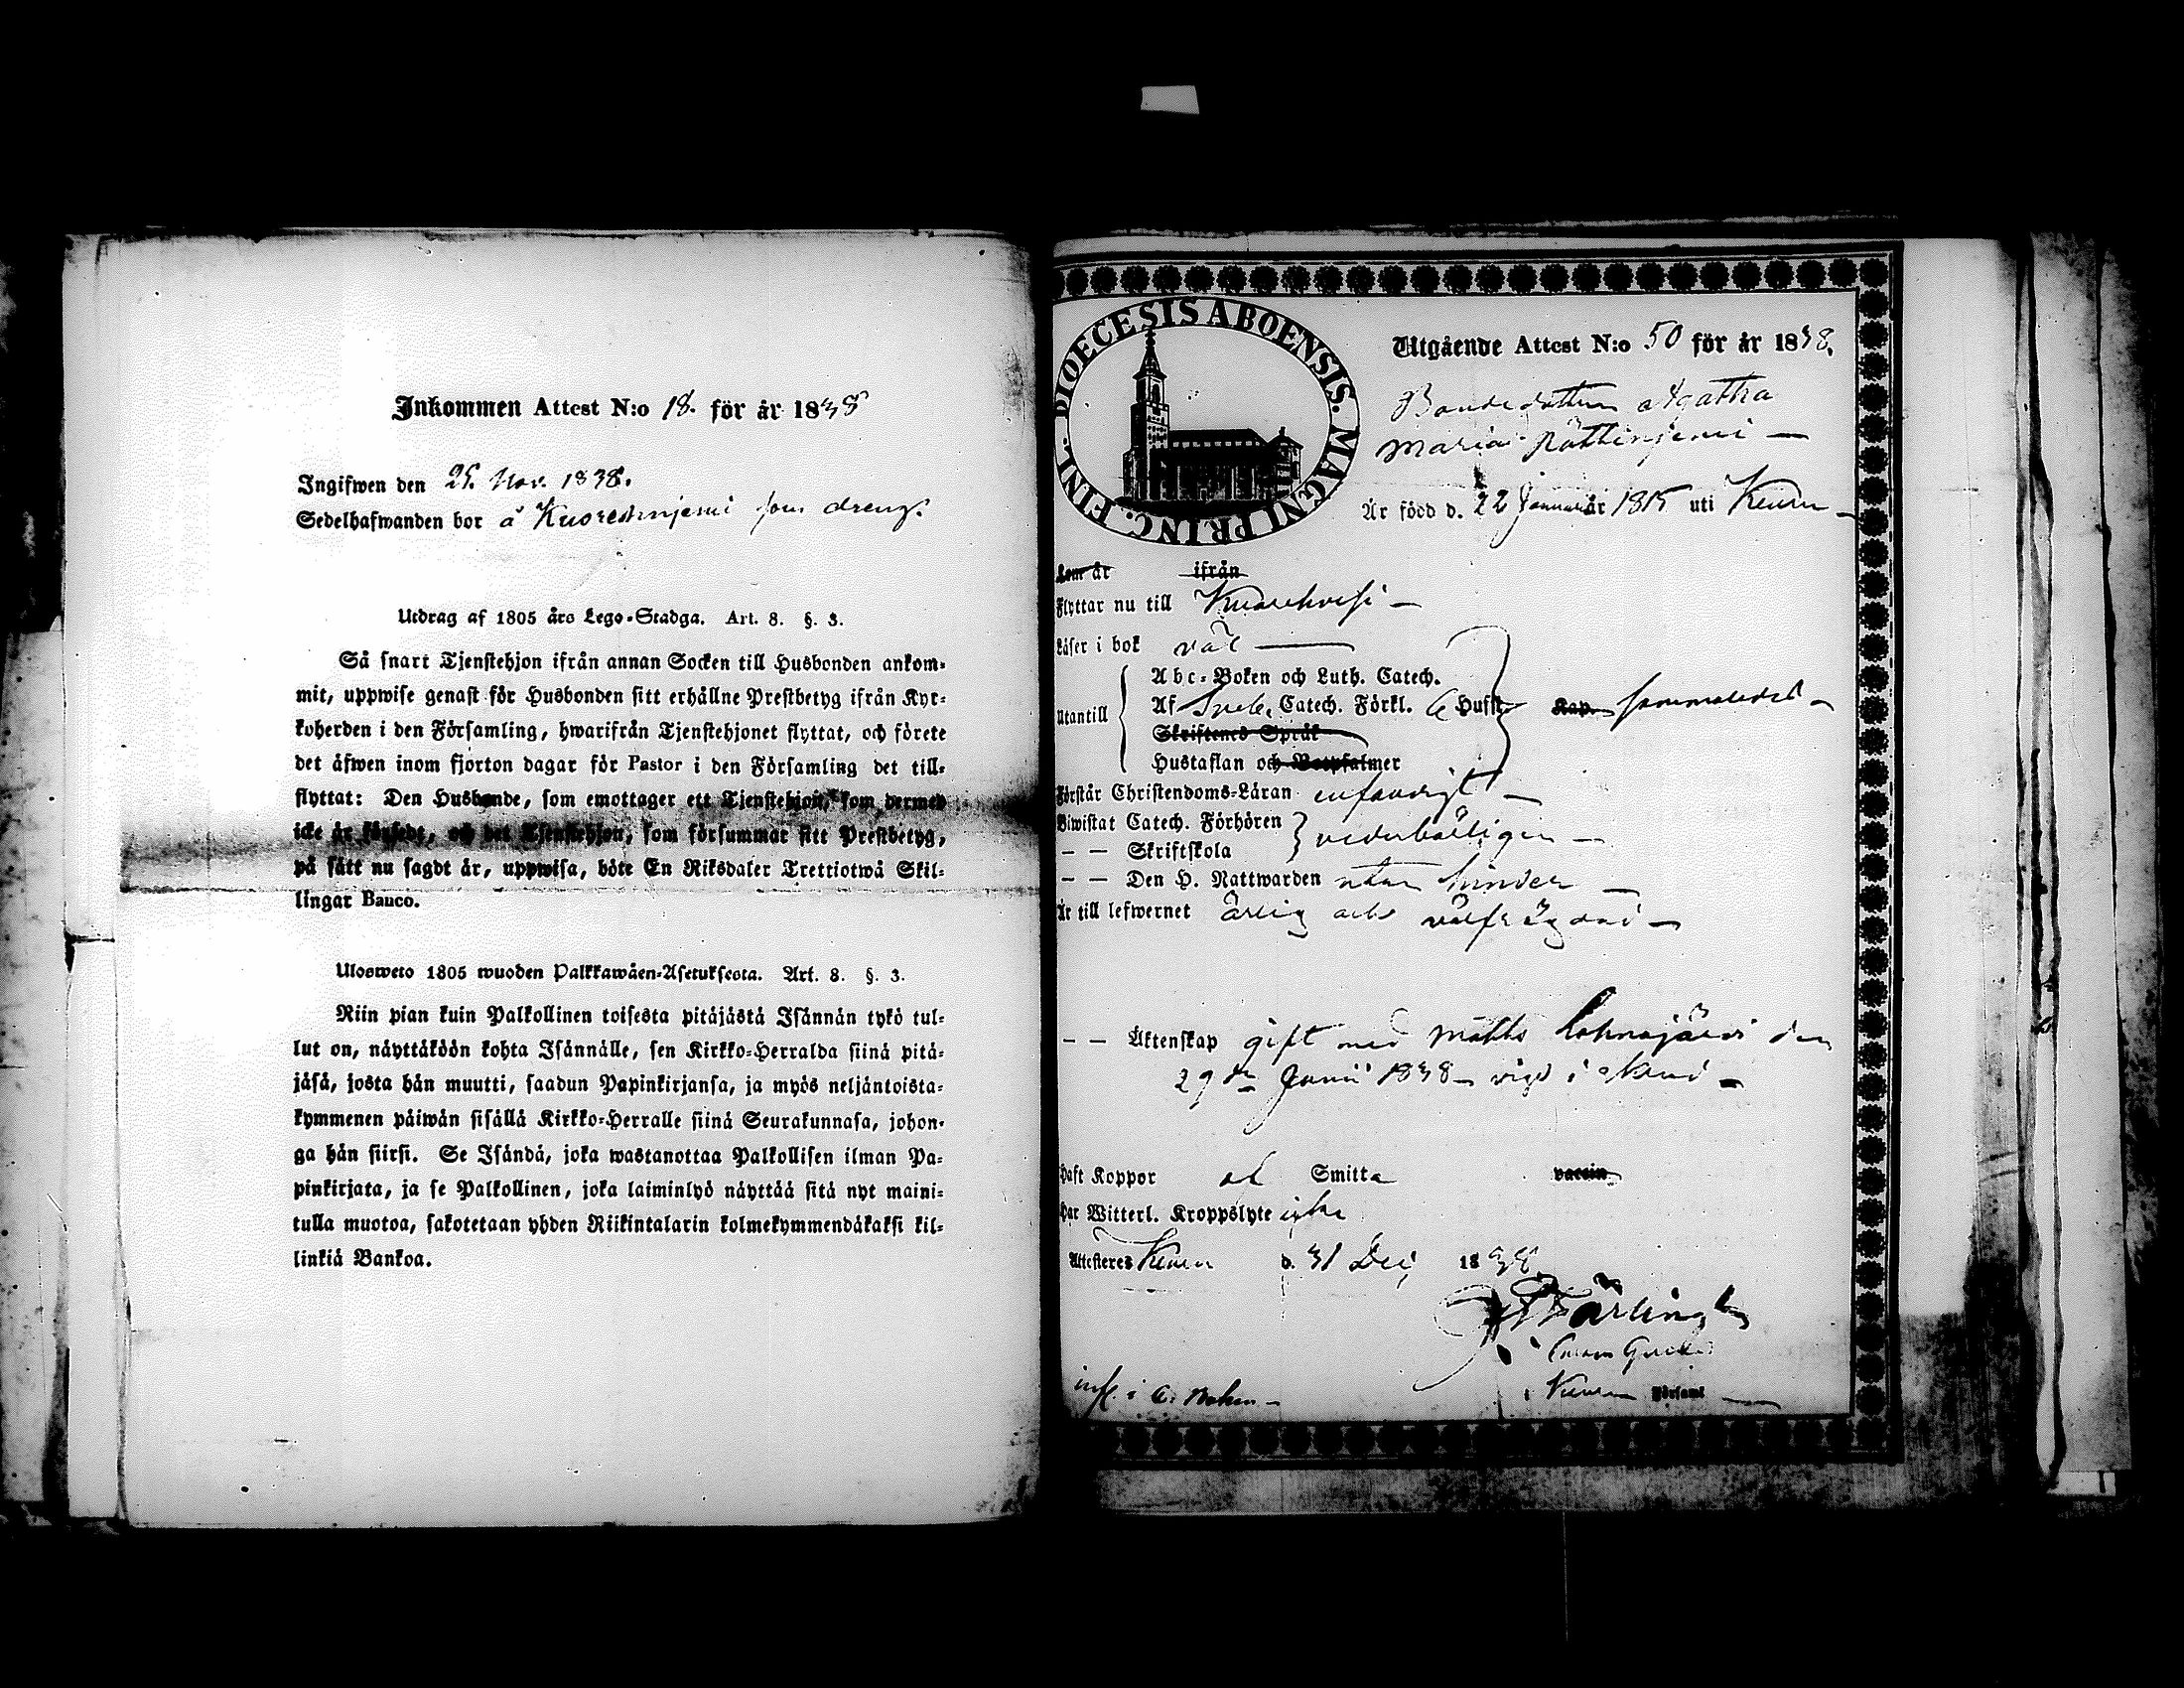 Inkommen Attest N:o 18. för år 1838
Ingifwen den 25. Nov. 1838.
Sedelhafwanden bor å som dreng.
Utdrag af 1805 års Lego-Stadga. Art. 8. §. 3.
Så snart Tjenstehjon ifrån annan Socken till Husbonden ankom-
mit, uppwise genast för Husbonden sitt erhållne Prestbetyg ifrån Kyr-
koherden i den Församling, hwarifrån Tjenstehjonet flyttat, och förete
det äfwen inom fjorton dagar för Pastor i den Församling det till-
flyttat: Den Husbonde, som emottager ett Tjenstehjon, som dermed
icke är försedt, och det Tjenstehjon, som försummar sitt Prestbetyg,
på sätt nu sagdt är, uppwisa, böte En Riksdaler Trettiotwå Skil-
lingar Banco.
Ulosweto 1805 wuoden Palkkawäen-Asetuksesta. Art. 8. §. 3.
Niin pian kuin Palkollinen toisesta pitäjästä Isännän tykö tul-
lut on, näyttäköön kohta Isännälle, sen Kirkko-Herralda siinä pitä-
jäsä, josta hän muutti, saadun Papinkirjansa, ja myös neljäntoista-
kymmenen päiwän sisällä Kirkko-Herralle siinä Seurakunnasa, johon-
ga hän siirsi. Se Isändä, joka wastanottaa Palkollisen ilman Pa-
pinkirjata, ja se Palkollinen, joka laiminlyö näyttää sitä nyt maini-
tulla muotoa, sakotetaan yhden Riikintalarin kolmekymmendäkaksi kil-
linkiä Bankoa.
DIOECESIS ABOENSIS. MAGNI PRINC. FINL.
Utgående Attest N:o 50 för år 1838.
Bondedottren Agatha
Maria
Är född d. 22 Januari år 1815 uti Keuru
Kom år ifrån
Flyttar nu till Kuorehvesi
Läser i bok väl
Abc-Boken och Luth. Catech.
Utantill Af Sveb. Catech. Förkl. Hufst. Kap. sammaledes
Skriftenes Språk
Hustaflan och Botpsalmer
Förstår Christendoms-Läran enfaldigt
Biwistat Catech. Förhören vederbörligen
— — Skriftskola
— — Den H. Nattwarden utan hinder
Är till lefwernet ärlig och välfrägdad
— — Äktenskap gift med Matts Lohnajärvi den
29de Junii 1838 vigd i
Haft Koppor af Smitta vaccin
Har Witterl. Kroppslyte icke
Attesteres Keuru d. 31 Dec. 1838
i Keuru Församl